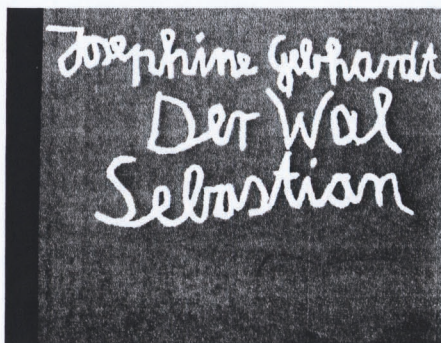 Josephine Gebhardt
Der Wal
Sebastian